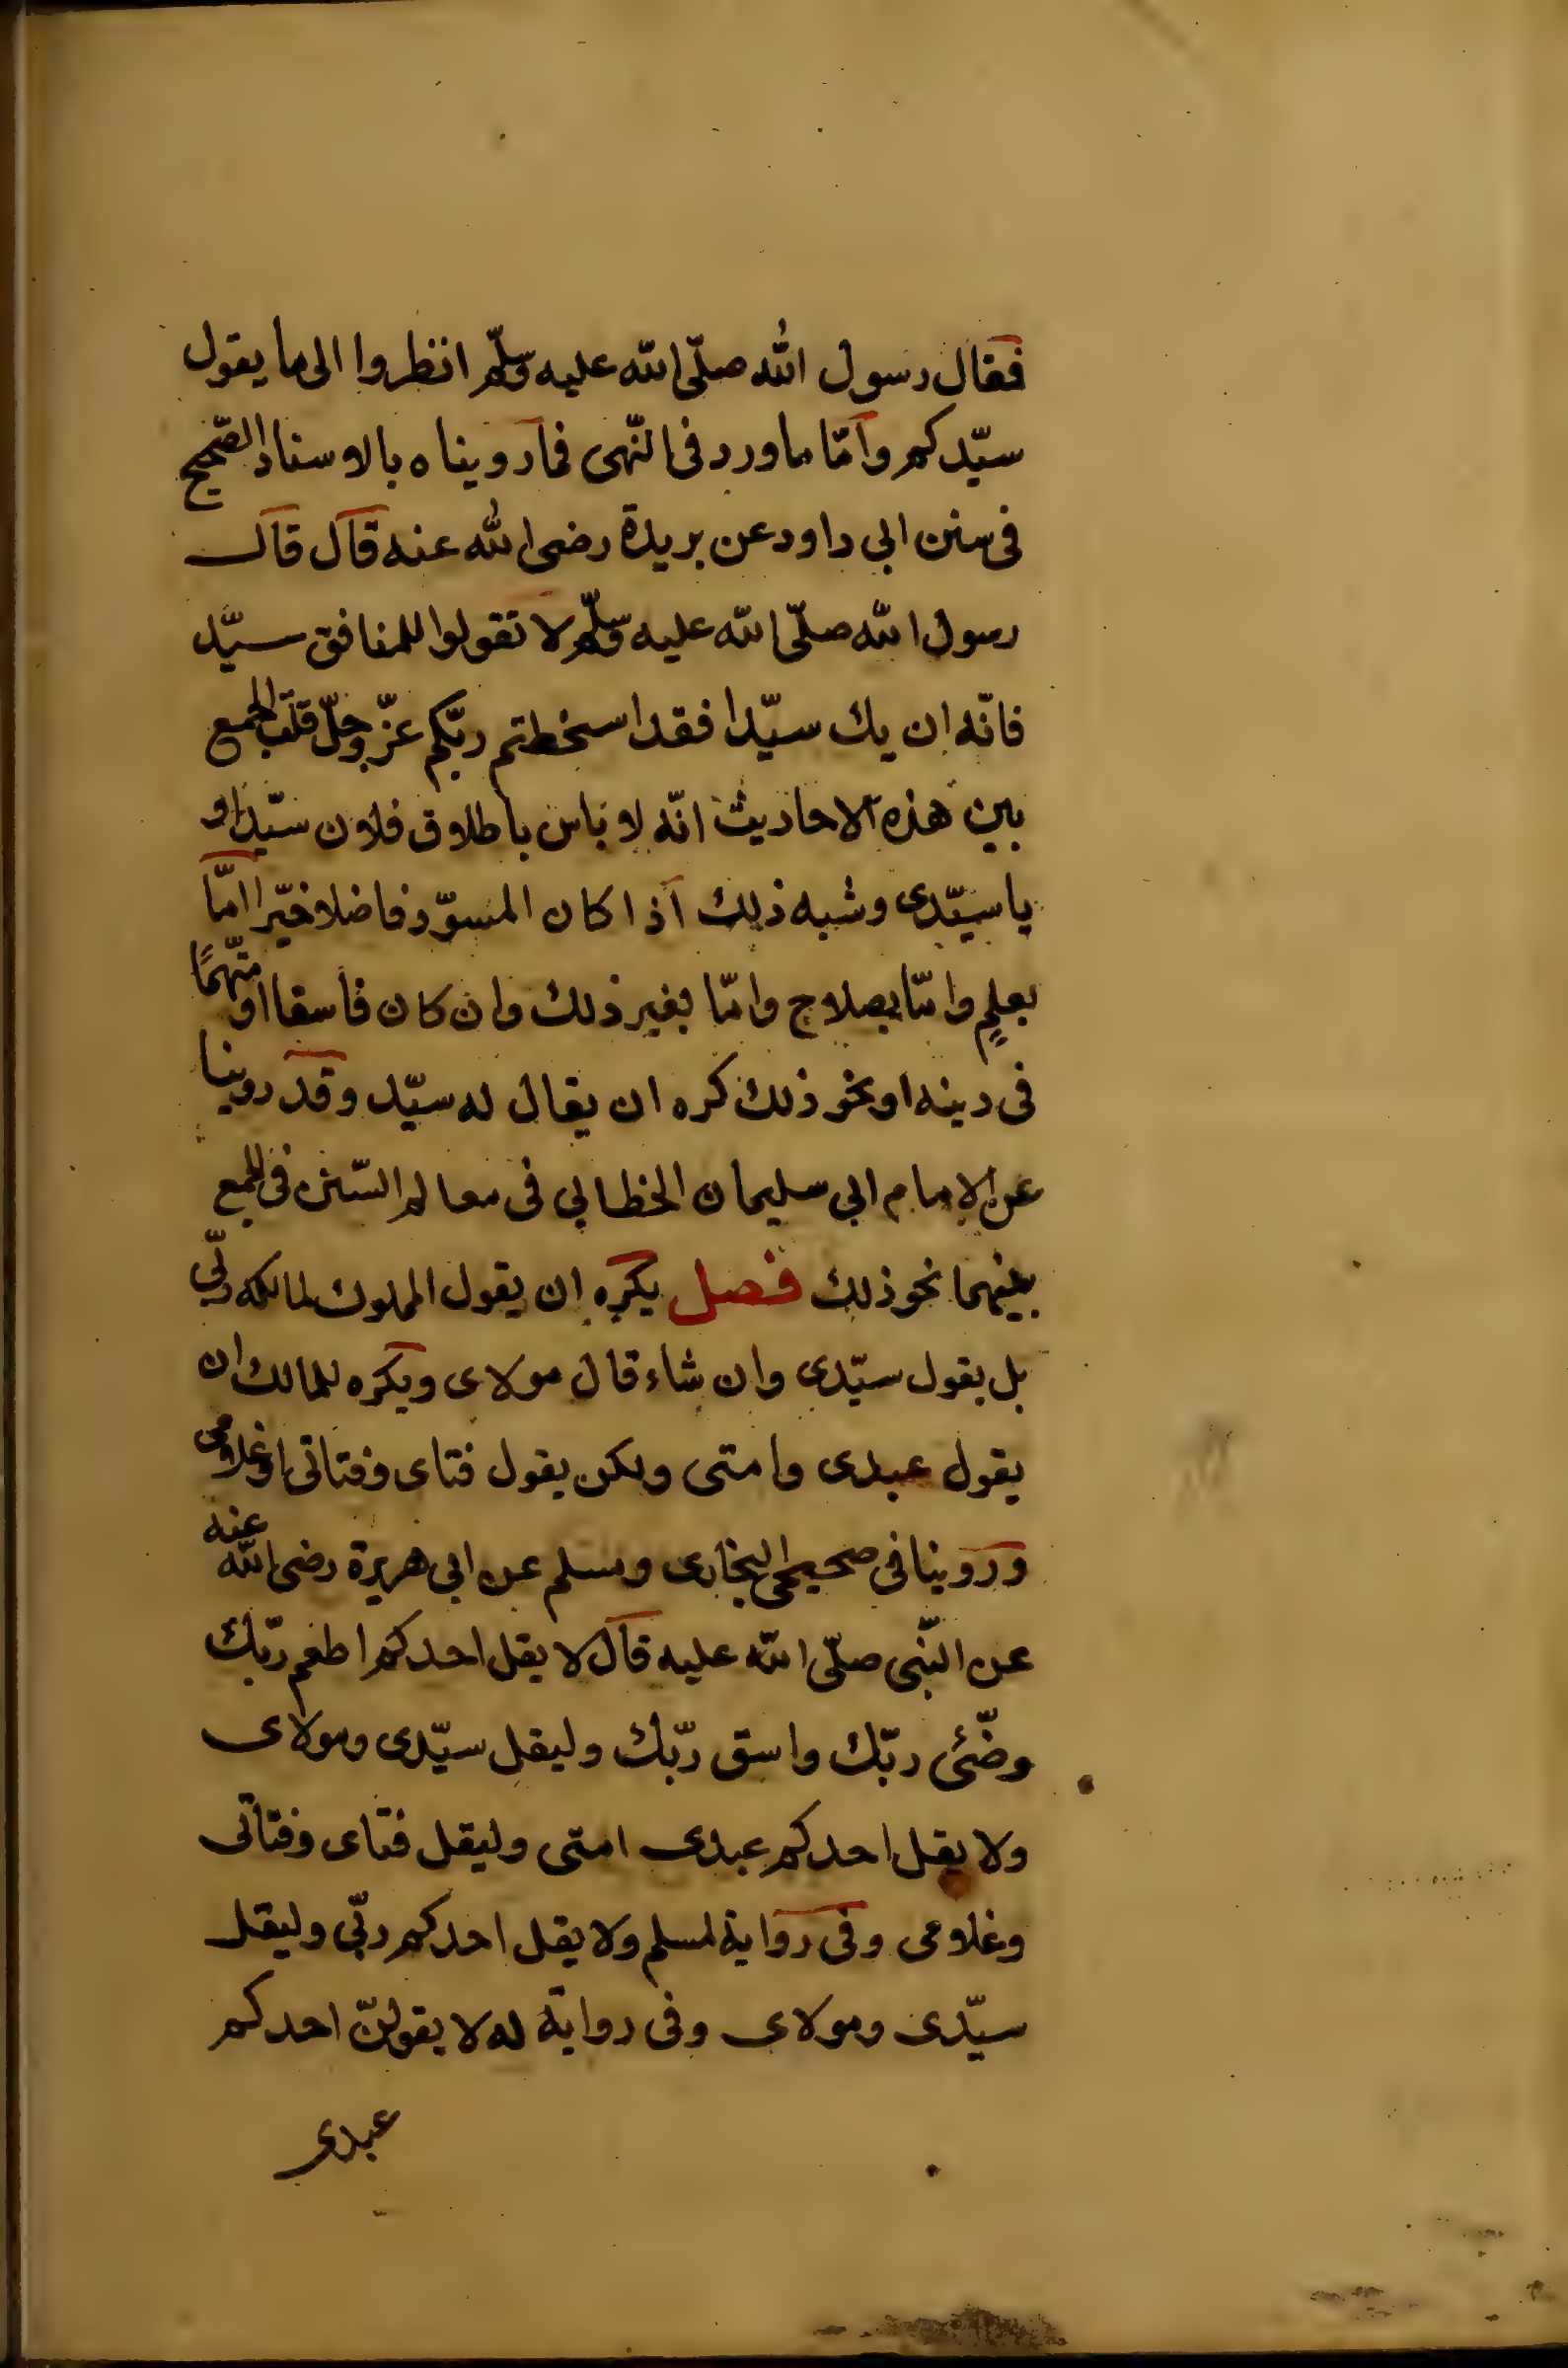 فقال رسول الله صلّى الله عليه وسلّم انظروا الى ما يقول
سيّدكم وامّا ما ورد فى النّهى فما رويناه بالاسناد الصّحيح
فى سنن ابى داود عن بريدة رضى الله عنه قال قال
رسول الله صلّى الله عليه وسلّم لا تقولوا للمنافق سيّد
فانّه ان يك سيّدا فقد اسخطتم ربّكم عزّ وجلّ قلت الجمع
بين هذه الاحاديث انّه لا باس باطلاق فلان سيّد او
يا سيّدى وشبه ذلك اذا كان المسوّد فاضلا خيّرا امّا
بعلمٍ وامّا بصلاح وامّا بغير ذلك وان كان فاسقا او متّهمًا
فى دينه او نحو ذلك كره ان يقال له سيّد وقد روينا
عن الامام ابى سليمان الخطابى فى معالم السّنن فى الجمع
بينهما نحو ذلك فصل يكره ان يقول المملوك لمالكه ربّى
بل يقول سيّدى وان شاء قال مولاى ويكره للمالك ان
يقول عبدى وامتى ولكن يقول فتاى وفتاتى او غلامى
وروينا فى صحيحى البخارى ومسلم عن ابى هريرة رضى الله عنه
عن النّبى صلّى الله عليه قال لا يقل احدكم اطعم ربّك
وضّئ ربّك واسق ربّك وليقل سيّدى ومولاى
ولا يقل احدكم عبدى امتى وليقل فتاى وفتاتى
وغلامى وفى رواية لمسلم ولا يقل احدكم ربّى وليقل
سيّدى ومولاى وفى رواية له لا يقولنّ احدكم
عبدى